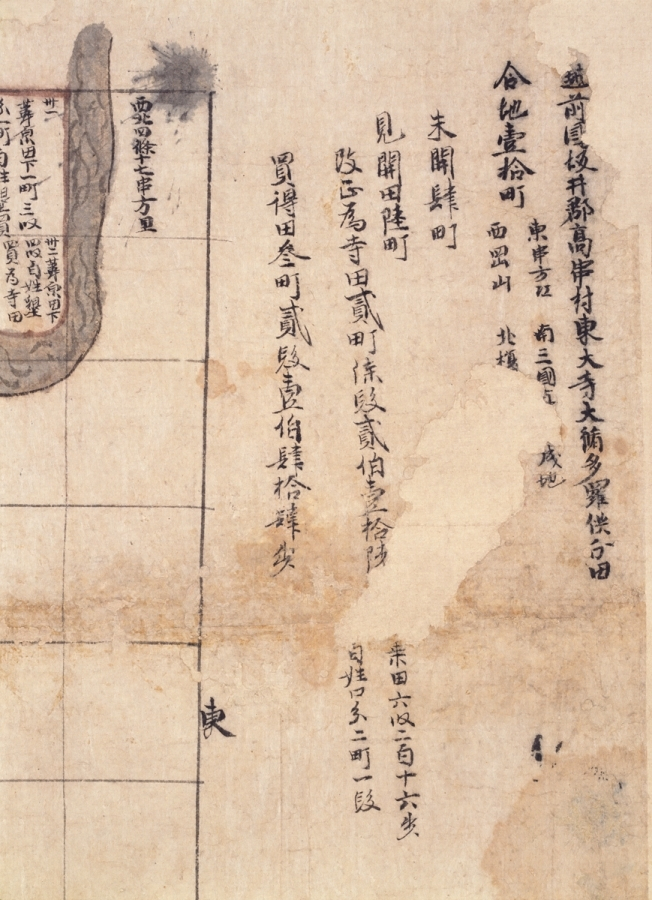 越前国坂井郡高串村東大寺大脩多羅供分田
合地壹拾町
東串方江 南三國
西岡山 北榎
未開肆町
見開田陸町
改正為寺田貳町漆段貳伯壹拾陸
乗田六段二百十六歩
百姓口分二町一段
買得田叁町貳段壹伯肆拾肆歩
西北四條十七串方里
東
卅一
葦原田下一町三段
卅二葦原田下
四段百姓墾
買為寺田